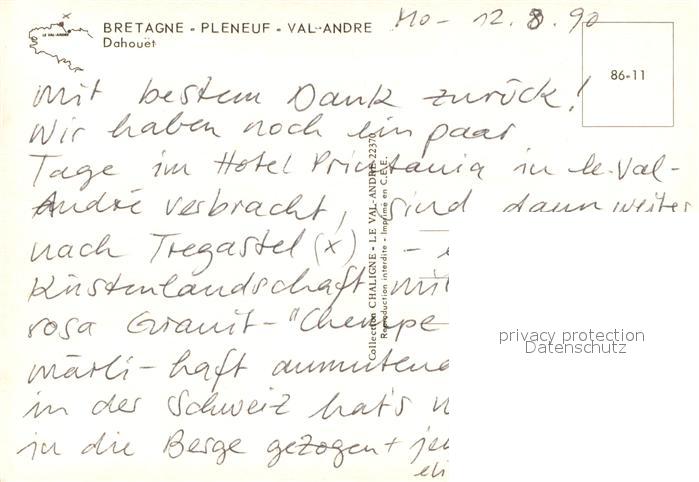 BRETAGNE - PLENEUF - VAL-ANDRE
Dahouët
LE VAL-ANDRÉ
Mo- 12. 8. 90
86-11
Mit bestem Dank zurück!
Wir haben noch ein paar
Tage im Hotel Printania in le-Val-
André verbracht, sind dann weiter
nach Tregastel (x) -
Küstenlandschaft mit
rosa Granit-"Chempe
märli-haft anmutend
in der Schweiz hat's
in die Berge gezogen +
Collection CHALIGNE - LE VAL-ANDRE 22370
Reproduction interdite - Imprimé en C.E.E.
privacy protection
Datenschutz